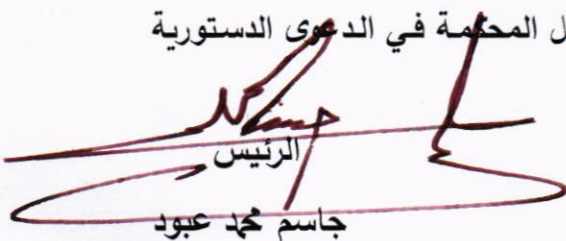 ل المحكمة في الدعوى الدستورية
الرئيس
جاسم محمد عبود